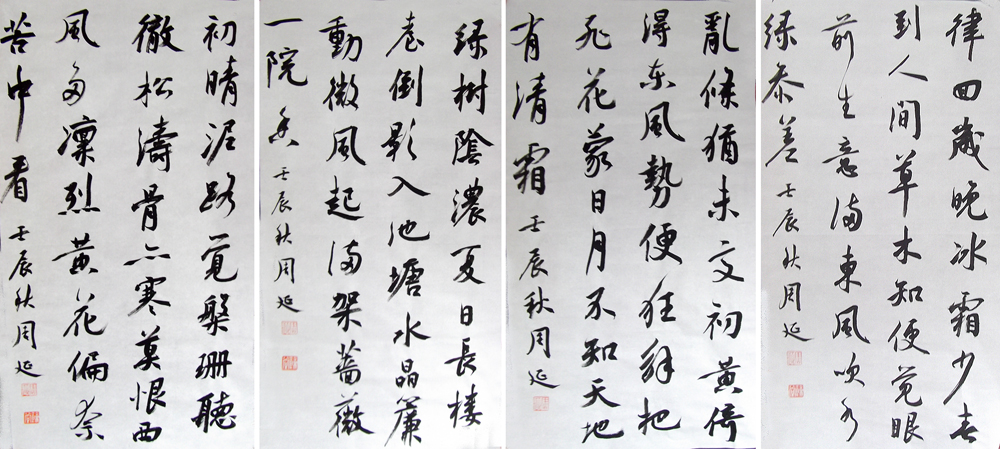 律回歲晚冰霜少春
到人間草木知便覺眼
前生意滿東風吹水
綠參差 壬辰秋周延
亂條猶未变初黃倚
得東風勢便狂解把
飛花蒙日月不知天地
有清霜 壬辰秋周延
綠樹陰濃夏日長樓
臺倒影入池塘水晶簾
動微風起滿架薔薇
一院香 壬辰秋周延
初晴泥路覓槃珊聽
徹松濤骨亦寒莫恨西
風多凜烈黃花偏奈
苦中看 壬辰秋周延